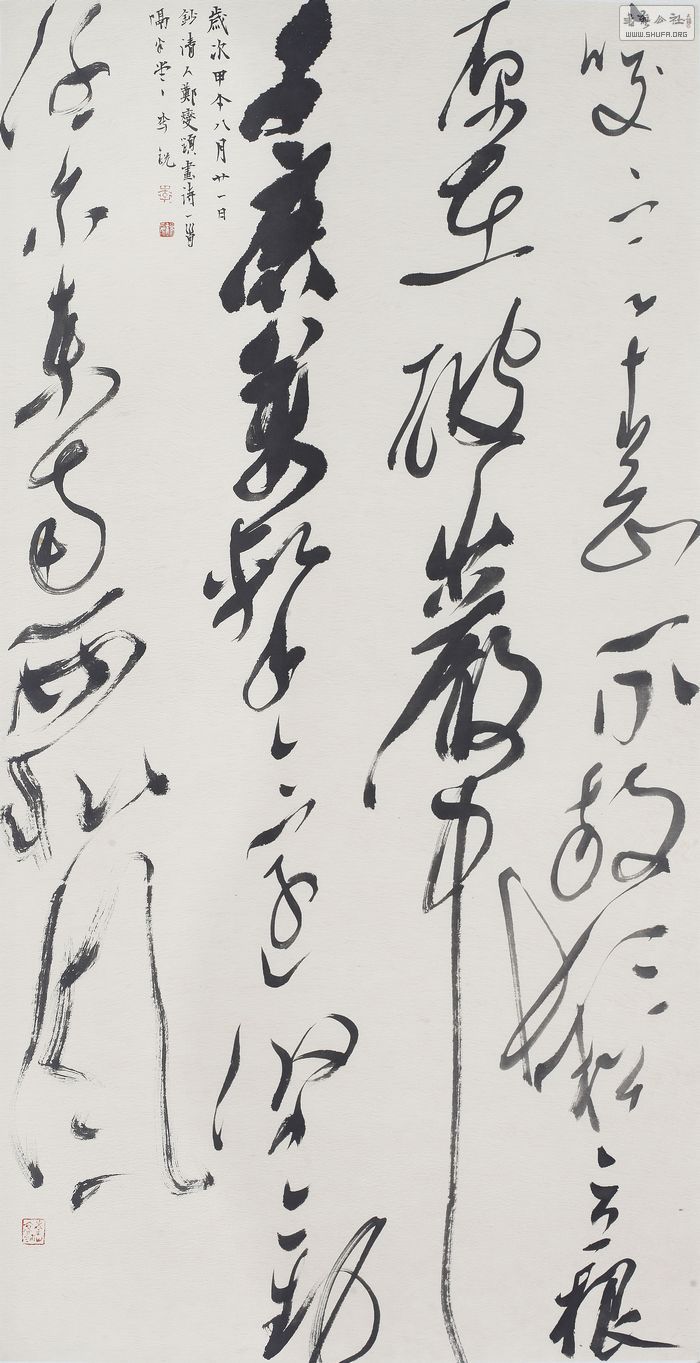 書法公社
WWW.SHUFA.ORG
咬定青山不放鬆立根
原在破巖中
千磨萬擊還堅勁
任尔東南西北風
歲次甲午八月廿一日
鈔清人鄭燮題畫詩一首